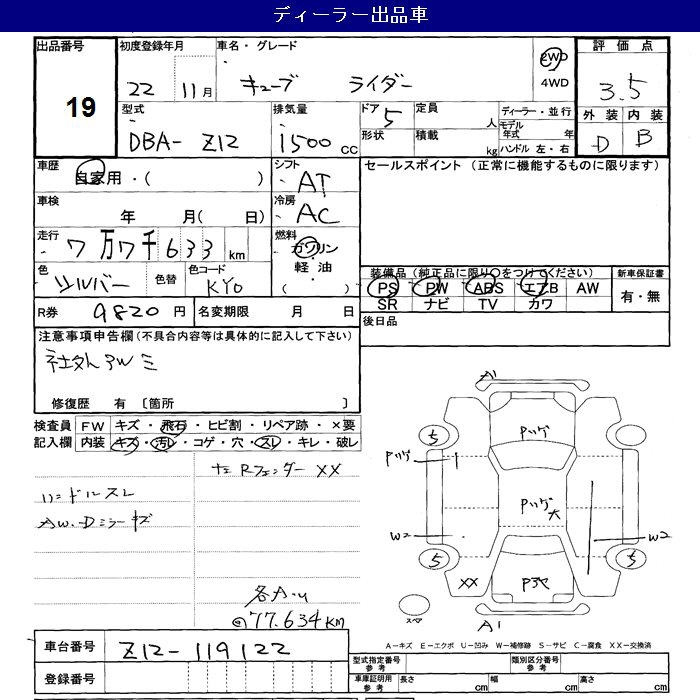 ディーラー出品車
出品番号
19
初度登録年月
22 11月
車名・グレード
キューブ ライダー
2WD
4WD
評価点
3.5
外装 内装
D B
型式
DBA- Z12
排気量
1500 CC
ドア
5
定員
人
形状
積載
kg
ディーラー・並行
モデル年式 年
ハンドル 左・右
車歴
自家用・( )
シフト
AT
セールスポイント (正常に機能するものに限ります)
車検
年 月( 日)
冷房
AC
走行
7万7千633 km
燃料
ガソリン
軽・油
( )
色
シルバー
色替
色コード
KY0
装備品(純正品に限り○をつけてください)
PS PW ABS エアB AW
SR ナビ TV カワ
新車保証書
有・無
R券 9820 円
名変期限 月 日
後日品
注意事項申告欄(不具合内容等は具体的に記入して下さい)
社外AW
修復歴 有 〔箇所 〕
検査員記入欄
FW キズ・飛石・ヒビ割・リペア跡・×要
内装 キズ・汚レ・コゲ・穴・スレ・キレ・破レ
Rフェンダー XX
ハンドルスレ
AW.Dミラーキズ
各A.U
77.634km
A1
5
Pハゲ
Pハゲ
Pハゲ大
W2
W2
5
5
XX
スペア
A1
A-キズ E-エクボ U-凹み W-補修跡 S-サビ C-腐食 XX-交換済
車台番号 Z12-119122
登録番号
型式指定番号 参考
類別区分番号 参考
車庫証明用 参考
長さ cm
幅 cm
高さ cm